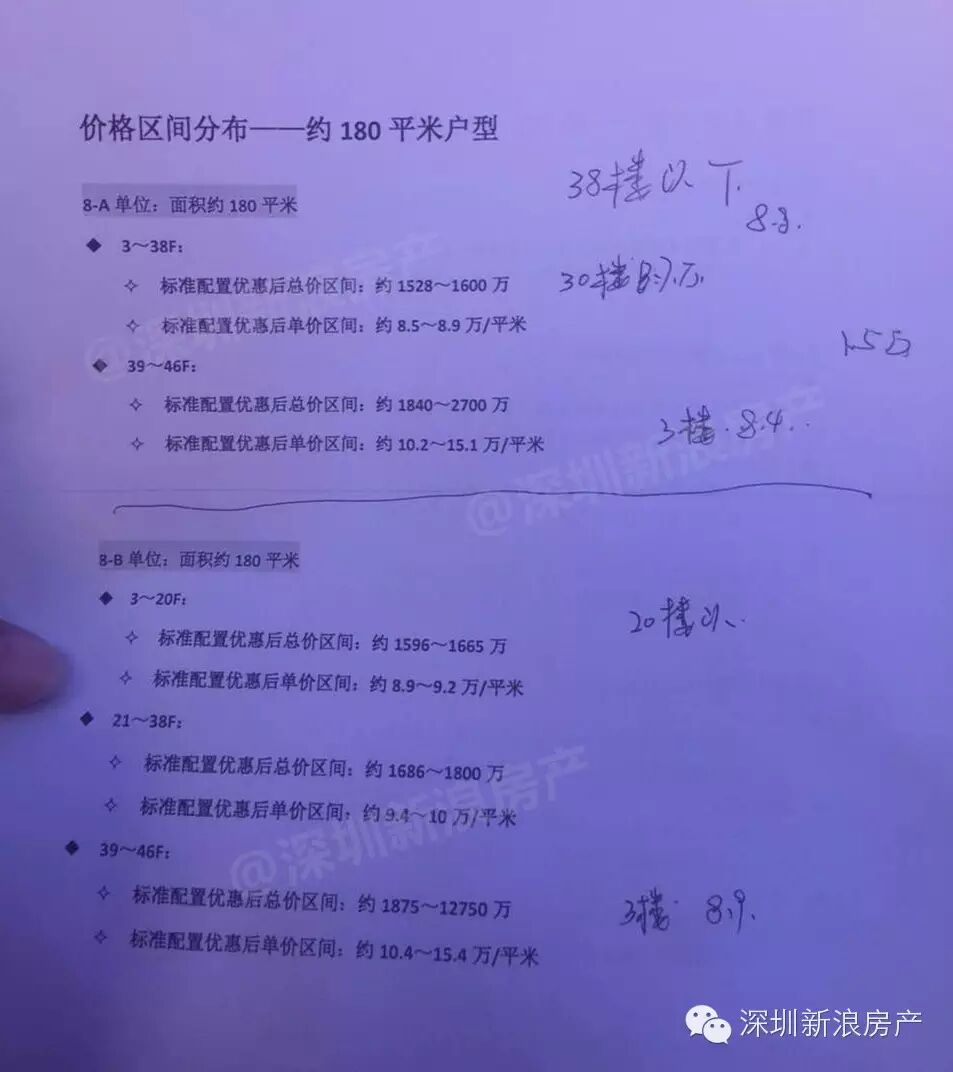 价格区间分布——约 180 平米户型
38楼以下.
8-A 单位：面积约 180 平米
8.8.
◆ 3～38F：
✧ 标准配置优惠后总价区间：约 1528～1600 万
30楼
✧ 标准配置优惠后单价区间：约 8.5～8.9 万/平米
◆ 39～46F：
✧ 标准配置优惠后总价区间：约 1840～2700 万
3楼. 8.4..
✧ 标准配置优惠后单价区间：约 10.2～15.1 万/平米
8-B 单位：面积约 180 平米
◆ 3～20F：
20楼以..
✧ 标准配置优惠后总价区间：约 1596～1665 万
✧ 标准配置优惠后单价区间：约 8.9～9.2 万/平米
◆ 21～38F：
✧ 标准配置优惠后总价区间：约 1686～1800 万
✧ 标准配置优惠后单价区间：约 9.4～10 万/平米
◆ 39～46F：
✧ 标准配置优惠后总价区间：约 1875～12750 万
3楼. 8.9.
✧ 标准配置优惠后单价区间：约 10.4～15.4 万/平米
@深圳新浪房产
@深圳新浪房产
@深圳新浪房产
深圳新浪房产